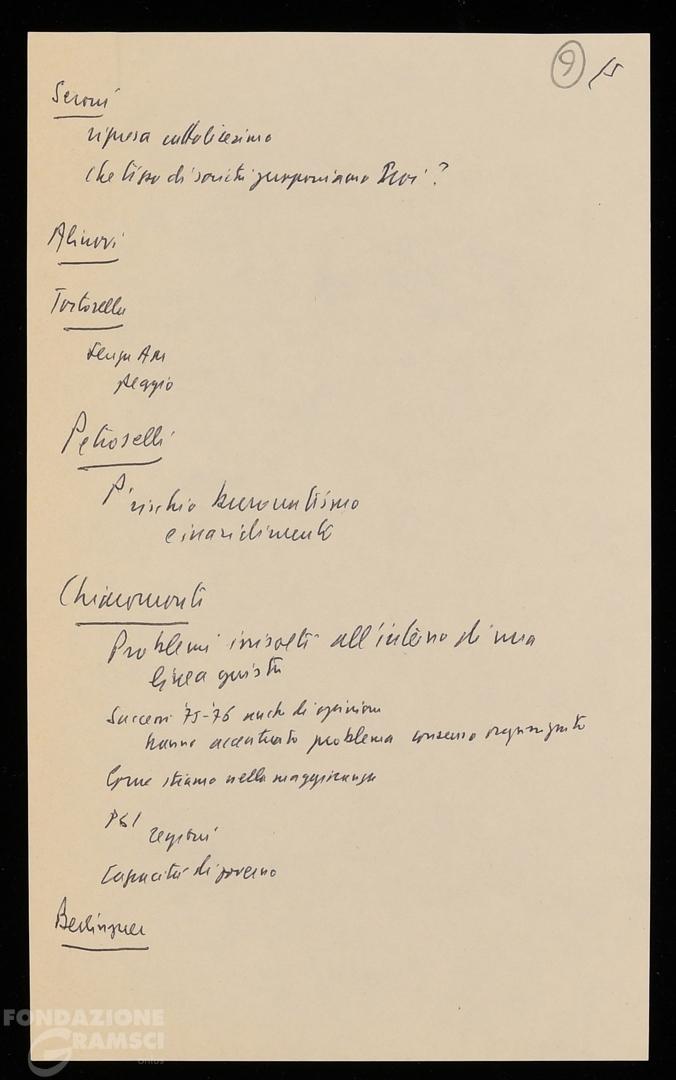 9 15
Seroni
ripresa cattolicesimo
che tipo di società proponiamo Noi?
Alinovi
Tortorella
Senza
peggio
Petroselli
P' rischio burocratismo
e inaridimento
Chiaromonte
Problemi irrisolti all'interno di una
linea giusta
Successi '75-'76 anche di opinione
hanno accentuato problema consenso organizzato
Come stiamo nella maggioranza
PSI
regioni
Capacità di governo
Berlinguer
FONDAZIONE
GRAMSCI
onlus